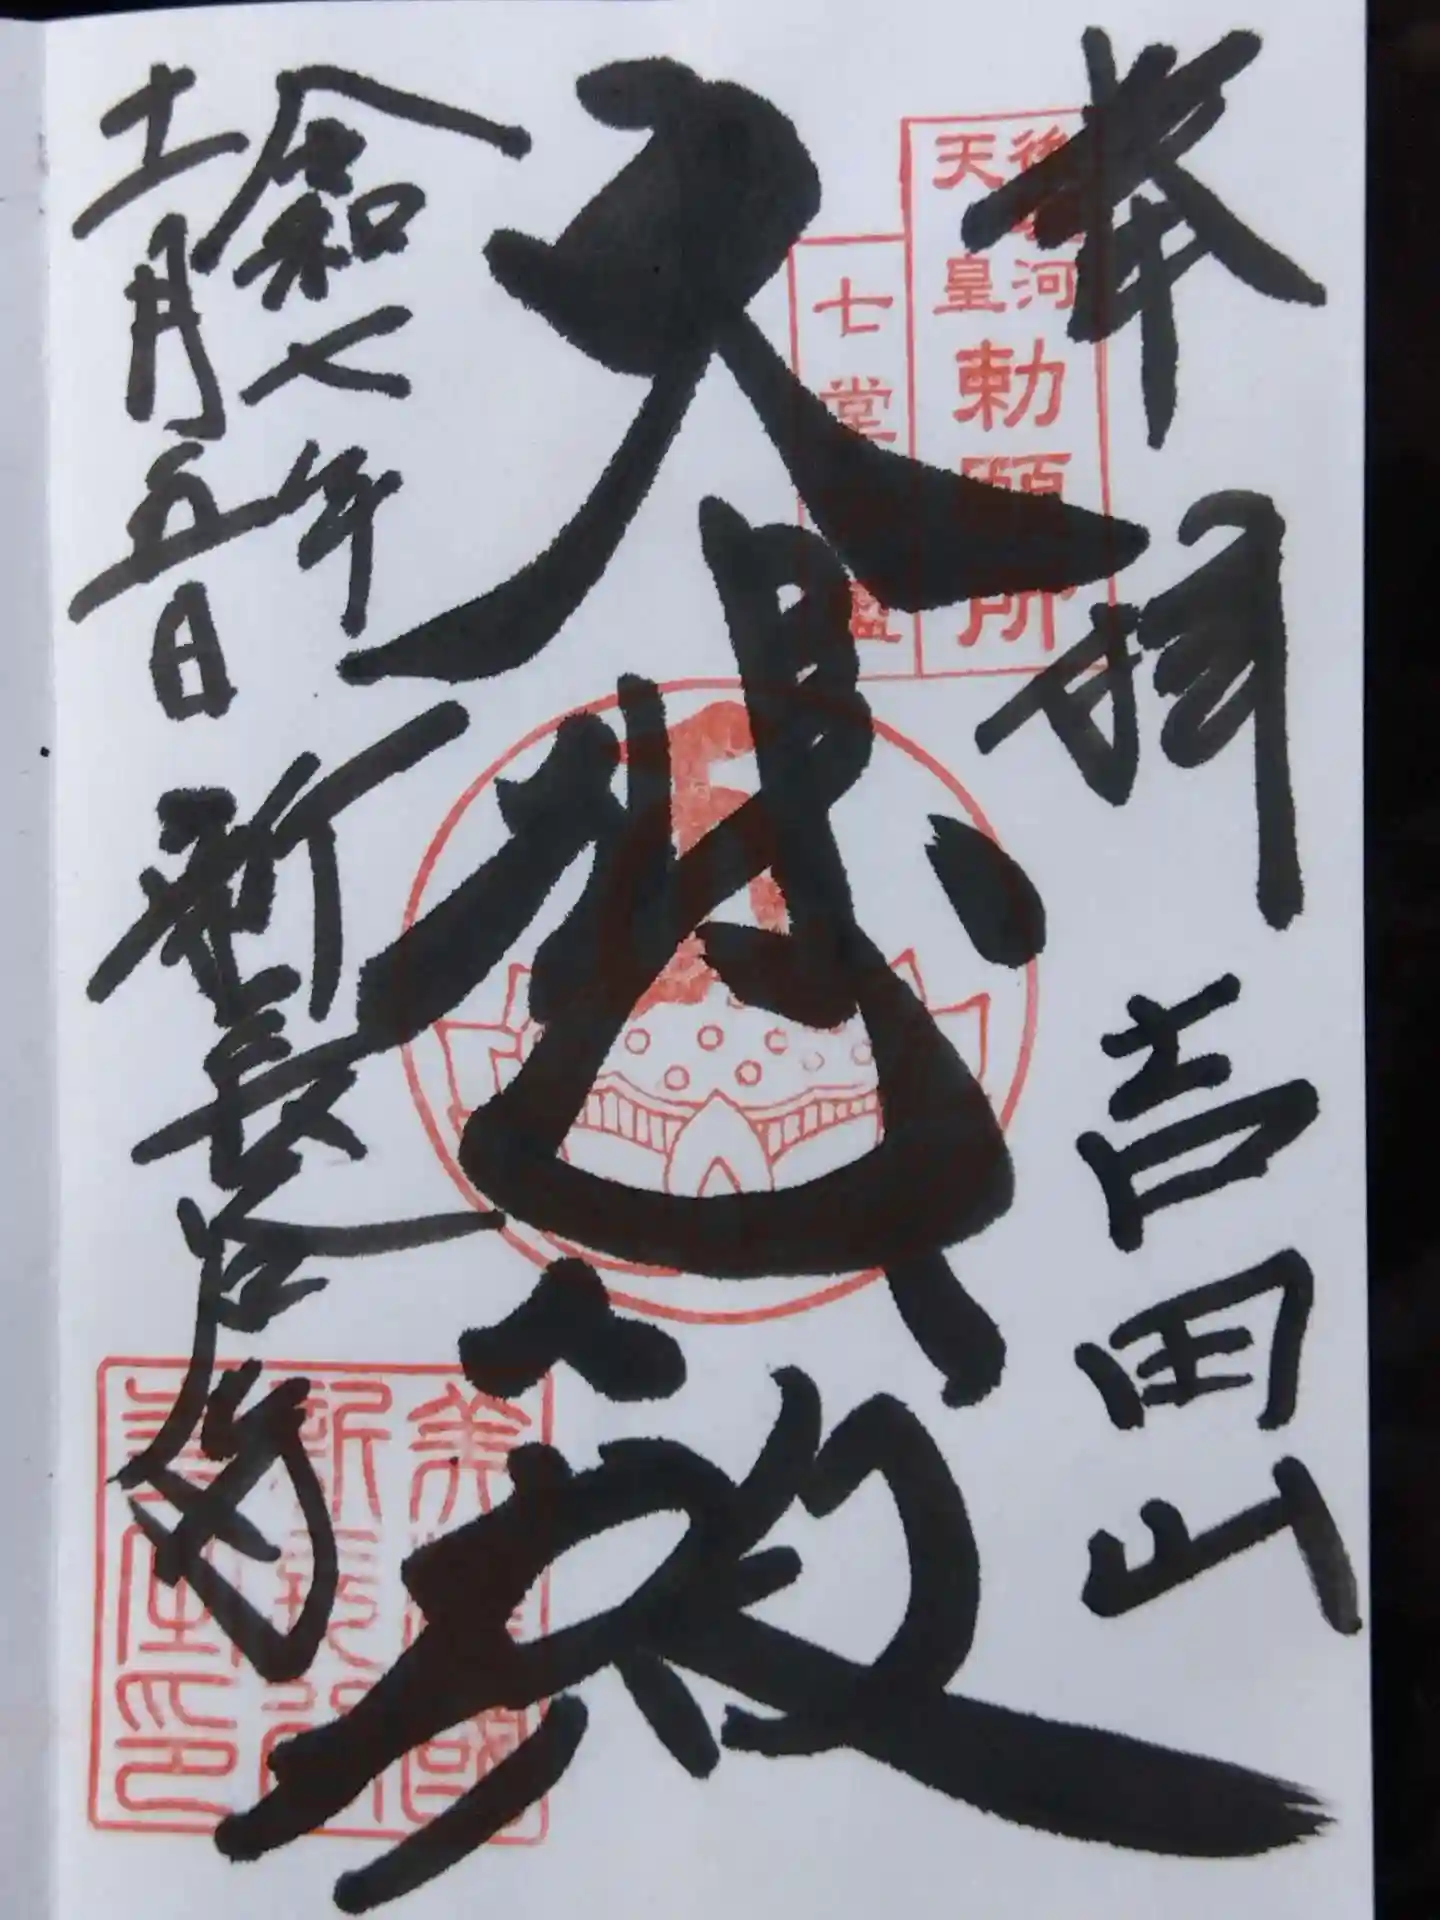 奉拝 吉田山
後堀河
天皇
勅願所
七堂伽藍
大悲殿
令和七年
十一月五日 新長谷寺
美濃國
新長谷